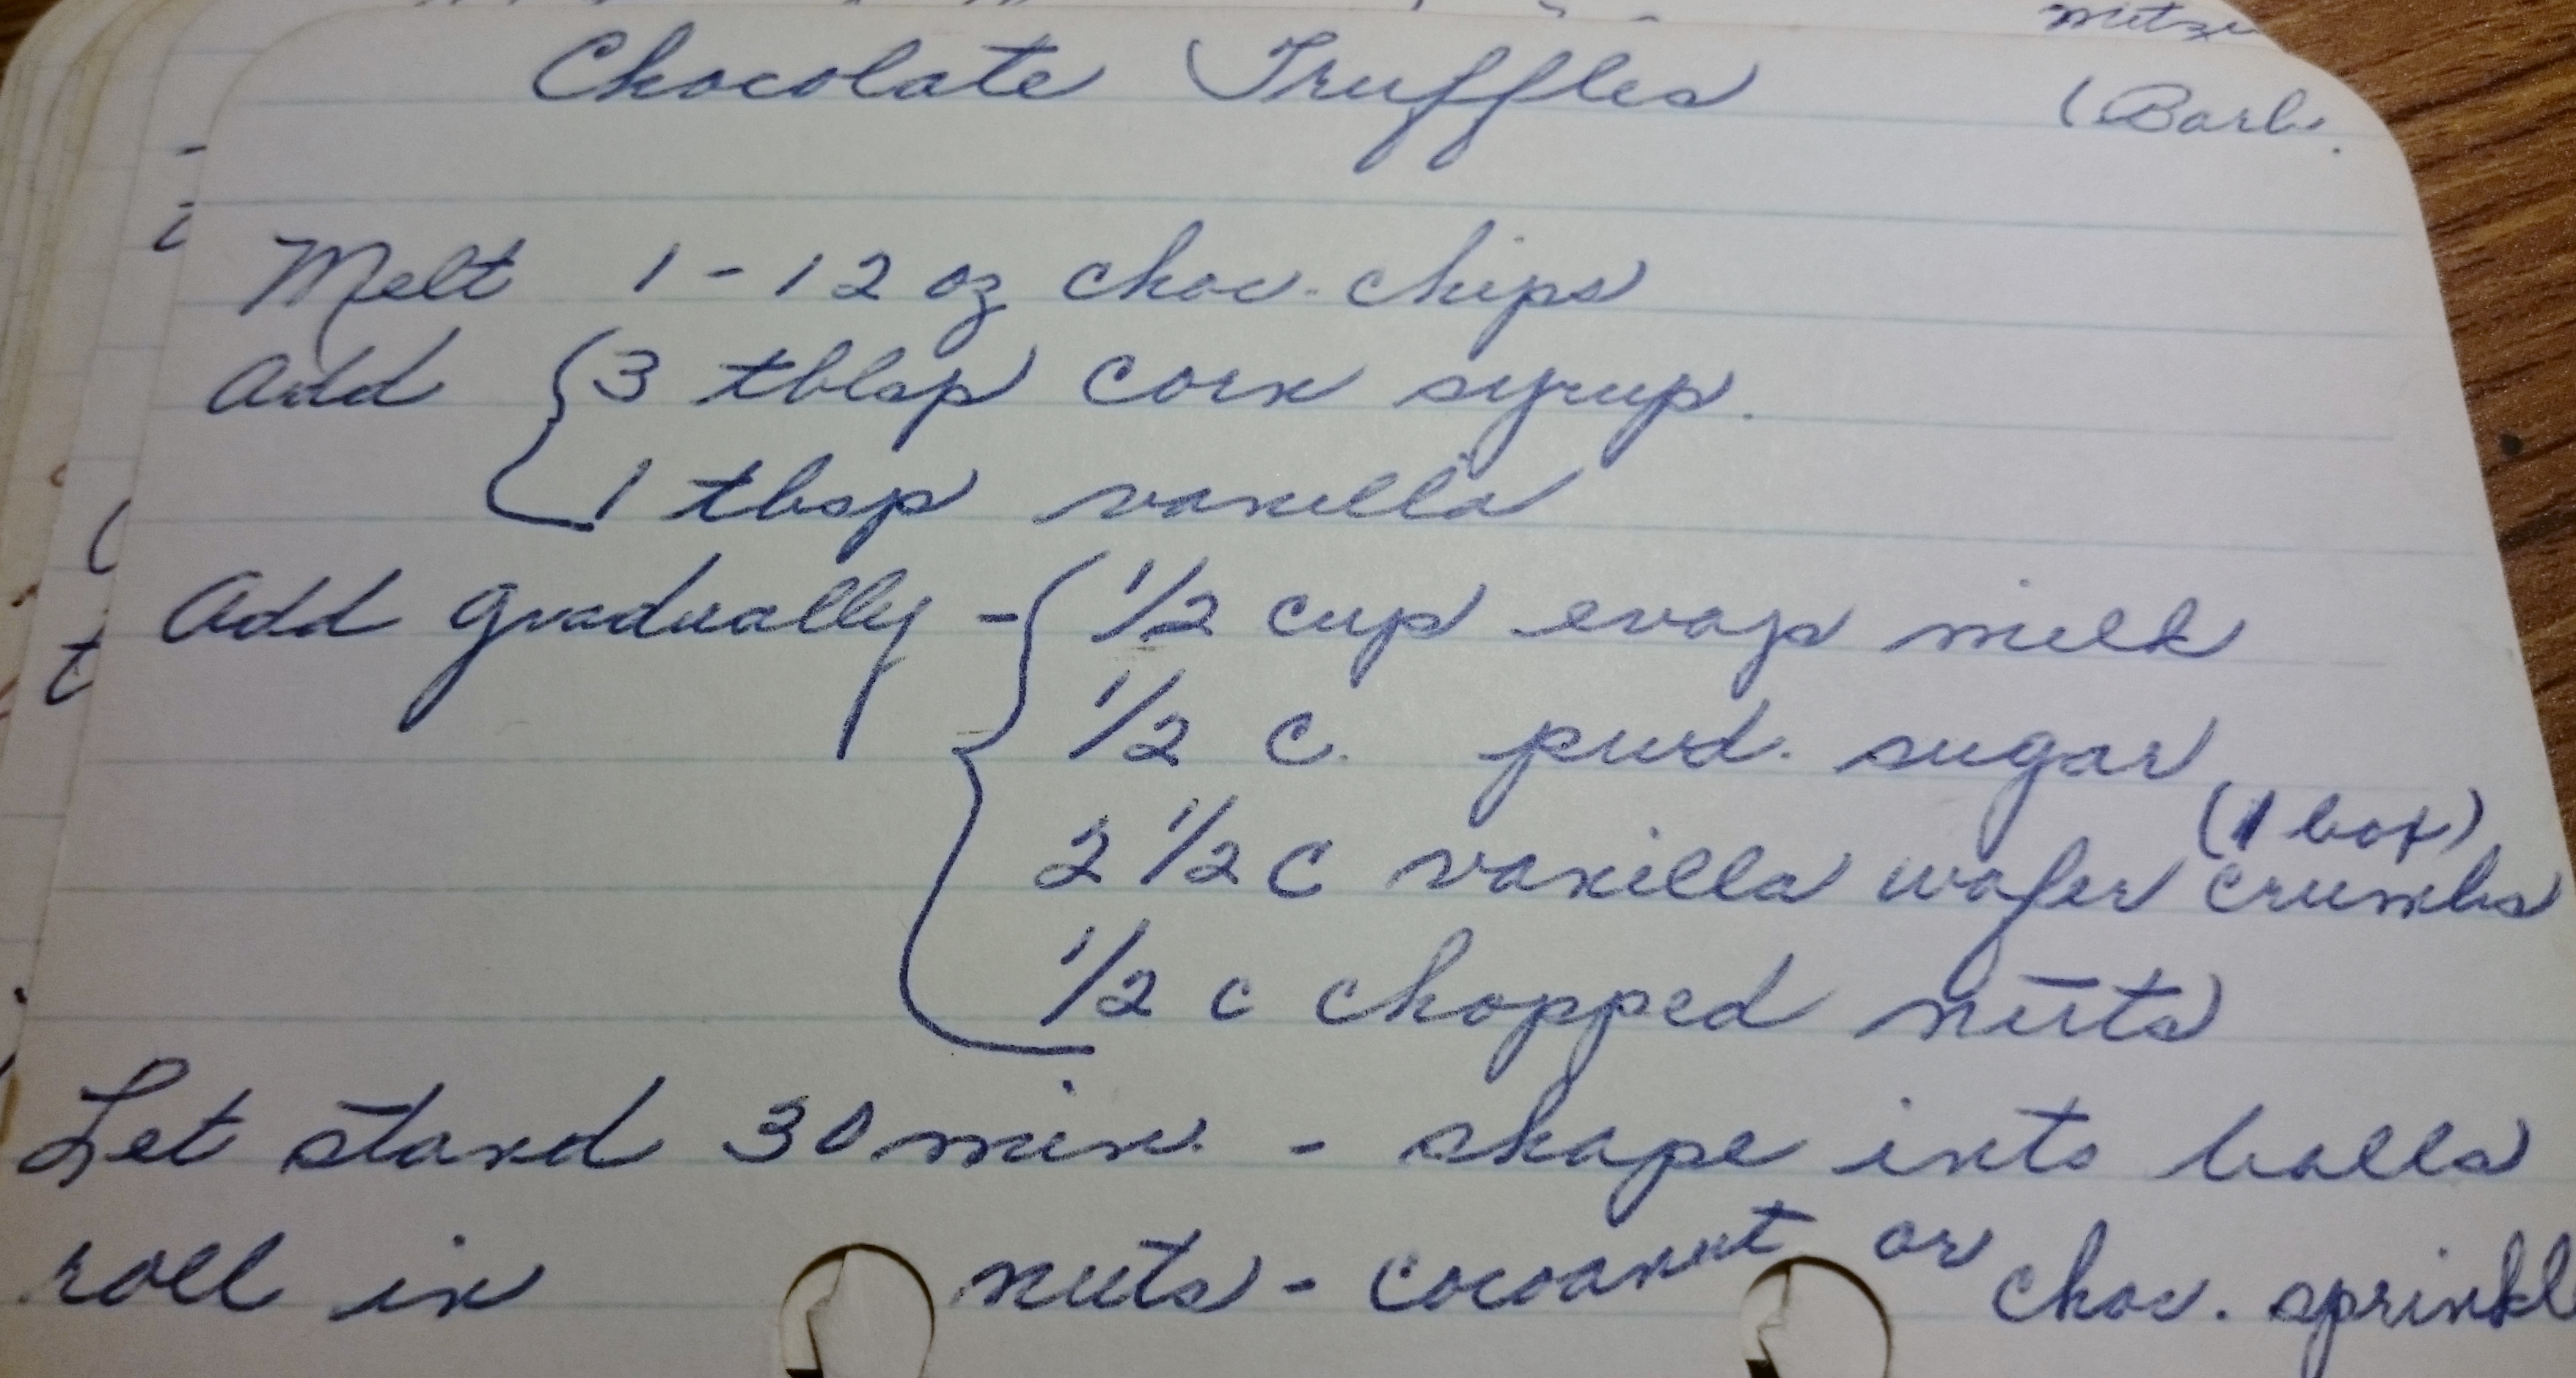 Chocolate Truffles
(Barb.
Melt 1 - 12 oz choc. chips
Add { 3 tblsp corn syrup.
1 tbsp vanilla
Add gradually - { 1/2 cup evap milk
1/2 c. pwd. sugar
(1 box)
2 1/2 C vanilla wafer crumbs
1/2 c chopped nuts
Let stand 30 min. - shape into balls
roll in nuts - cocoanut or choc. sprinkl